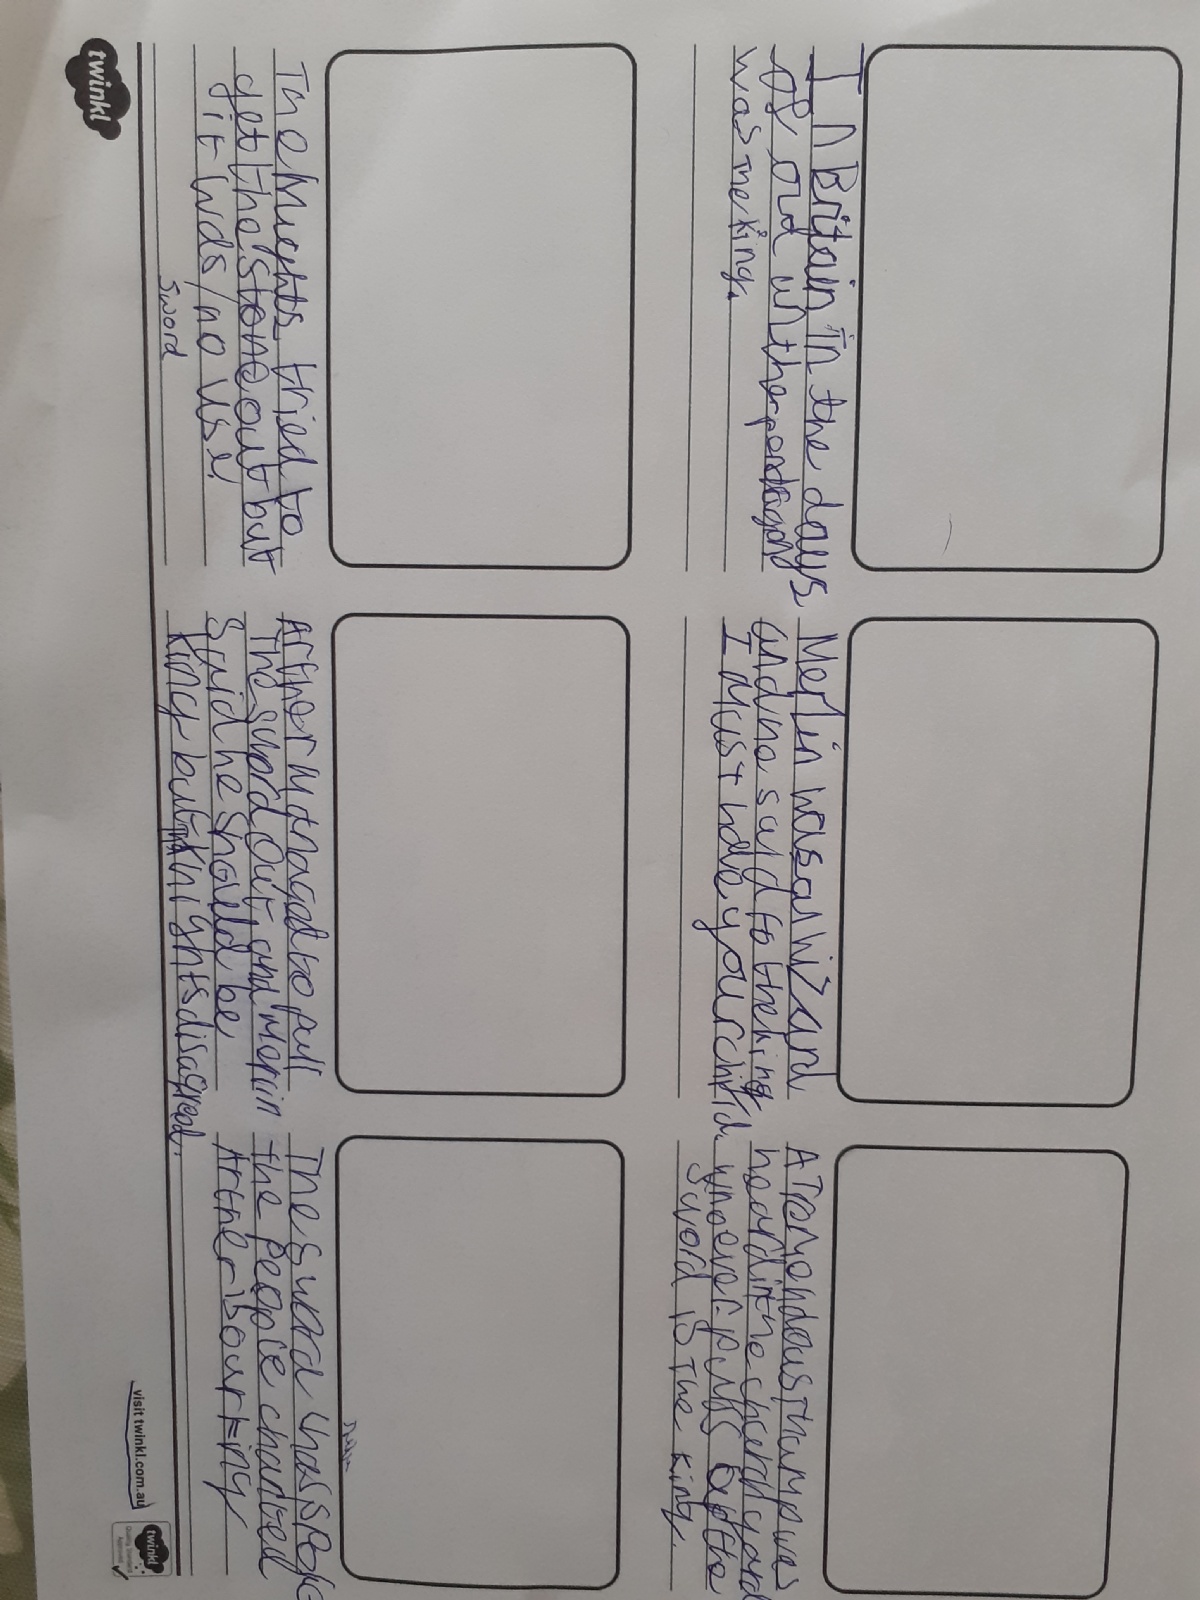 In Britain in the days
of old utherpendragon
was the king.
Merlin was a wizard
and he said to the king
I Must hide your child.
A Tremendous thump was
heard in the churchyard
whoever pulls out the
sword is the king.
The knights tried to
get the stone out but
it was no use!
sword
Arther managed to pull
The sword Out, and Merlin
Said he should be
king but the knights disagread.
The sword has spoke
the people chanted
Arther is our king
twinkl
visit twinkl.com.au
twinkl
Quality Standard
Approved